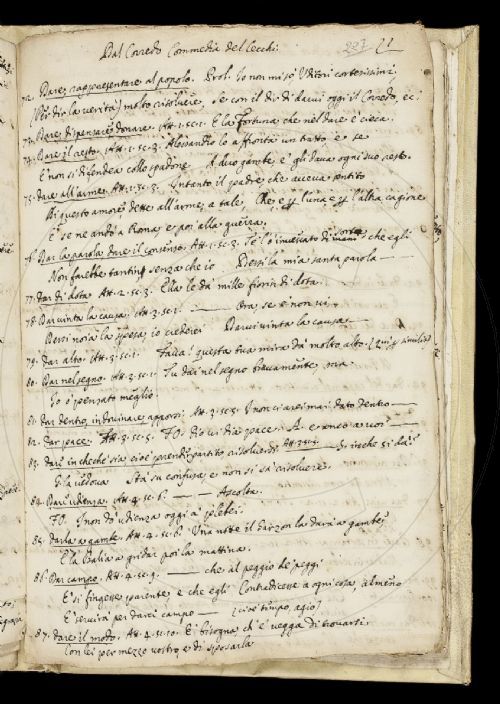 Dal Corredo Commedia del Cecchi. 227 21
72. Dare, rappresentare al popolo. Prol. Io non mi so Uditori cortesissimi,
(Per dio la verità) molto risolvere, se con il dir di darvi oggi il Corredo, ec.
73. Dare, dispensare, donare. Att. 1. sc. 1. E la Fortuna che nel dare è cieca.
74. Dare il resto. Att. 1. sc. 3. Alessandro lo affrontà un tratto e se
E' non si difendea collo spadone A due gambe, e' gli dava ogni suo resto.
75. dare all'arme. Att. 1. sc. 3. Intanto il padre che aveva sentito
Di questo amore dette all'arme, a tale, Che, e p l'una e p l'altra cagione
E' se ne andò a Roma, e poi alla guerra.
76. Dar la parola, dare il consenso. Att. 1. sc. 3. che egli
Non farebbe senza che io Dessi la mia santa parola —
77. Dar di dota. Att. 2. sc. 3. Ella le dà mille fiorin di dota.
78. Dar vinta la causa. Att. 3. sc. 1. — Ora, se e' non vi
Dessi noia la spesa, io crederei Darvi vinta la causa —
79. Dar alto. Att. 3. sc. 1. Faccia! questa tua mira dà molto alto. (qui p similit.)
80. Dar nel segno. Att. 3. sc. 1. Tu dai nel segno bravamente, ora
Io ò pensato meglio.
81. Dar dentro, indovinare, apporsi. Att. 3. sc. 3. I' non ci arei mai dato dentro —
82. Dar pace. Att. 3. sc. 5. FO. dio vi dia pace. A. e anco a voi —
83. Dare in checchè sia, cioè prender partito, risolversi. Att. 3. sc. 5. In che si dà?
E la vedova Sta su confusa, e non si sa risolvere.
84. Dare udienza. Att. 4. sc. 6. — — Ascolta.
FO. I' non dò udienza oggi a'
85. Darla a gambe. Att. 4. sc. 6. Una notte il Garzon la darà a gambe,
E la Balia a gridar poi la mattina.
86. Dar campo. Att. 4. sc. 9. — che al peggio de' peggi
E' si fingesse parente, e che egli Contradicesse a ogni cosa, almeno
E' servirà per darci campo — (cioè tempo, agio)
87. dare il modo. Att. 4. sc. 10. E' bisogna ch'e' vegga di trovarsi
Con lei per mezzo vostro, e di sposarla